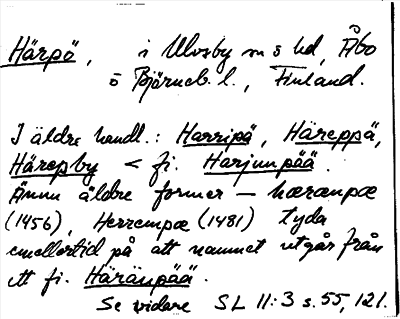 Härpö, i Ulvsby sn o hd, Åbo
o Björneb. l., Finland.
I äldre handl.: Harripä, Häreppä,
Härepby < fi. Harjunpää.
Ännu äldre former — hærænpæ
(1456), Herrempæ (1481) tyda
emellertid på att namnet utgår från
ett fi. Häränpää.
Se vidare SL 11:3 s. 55, 121.